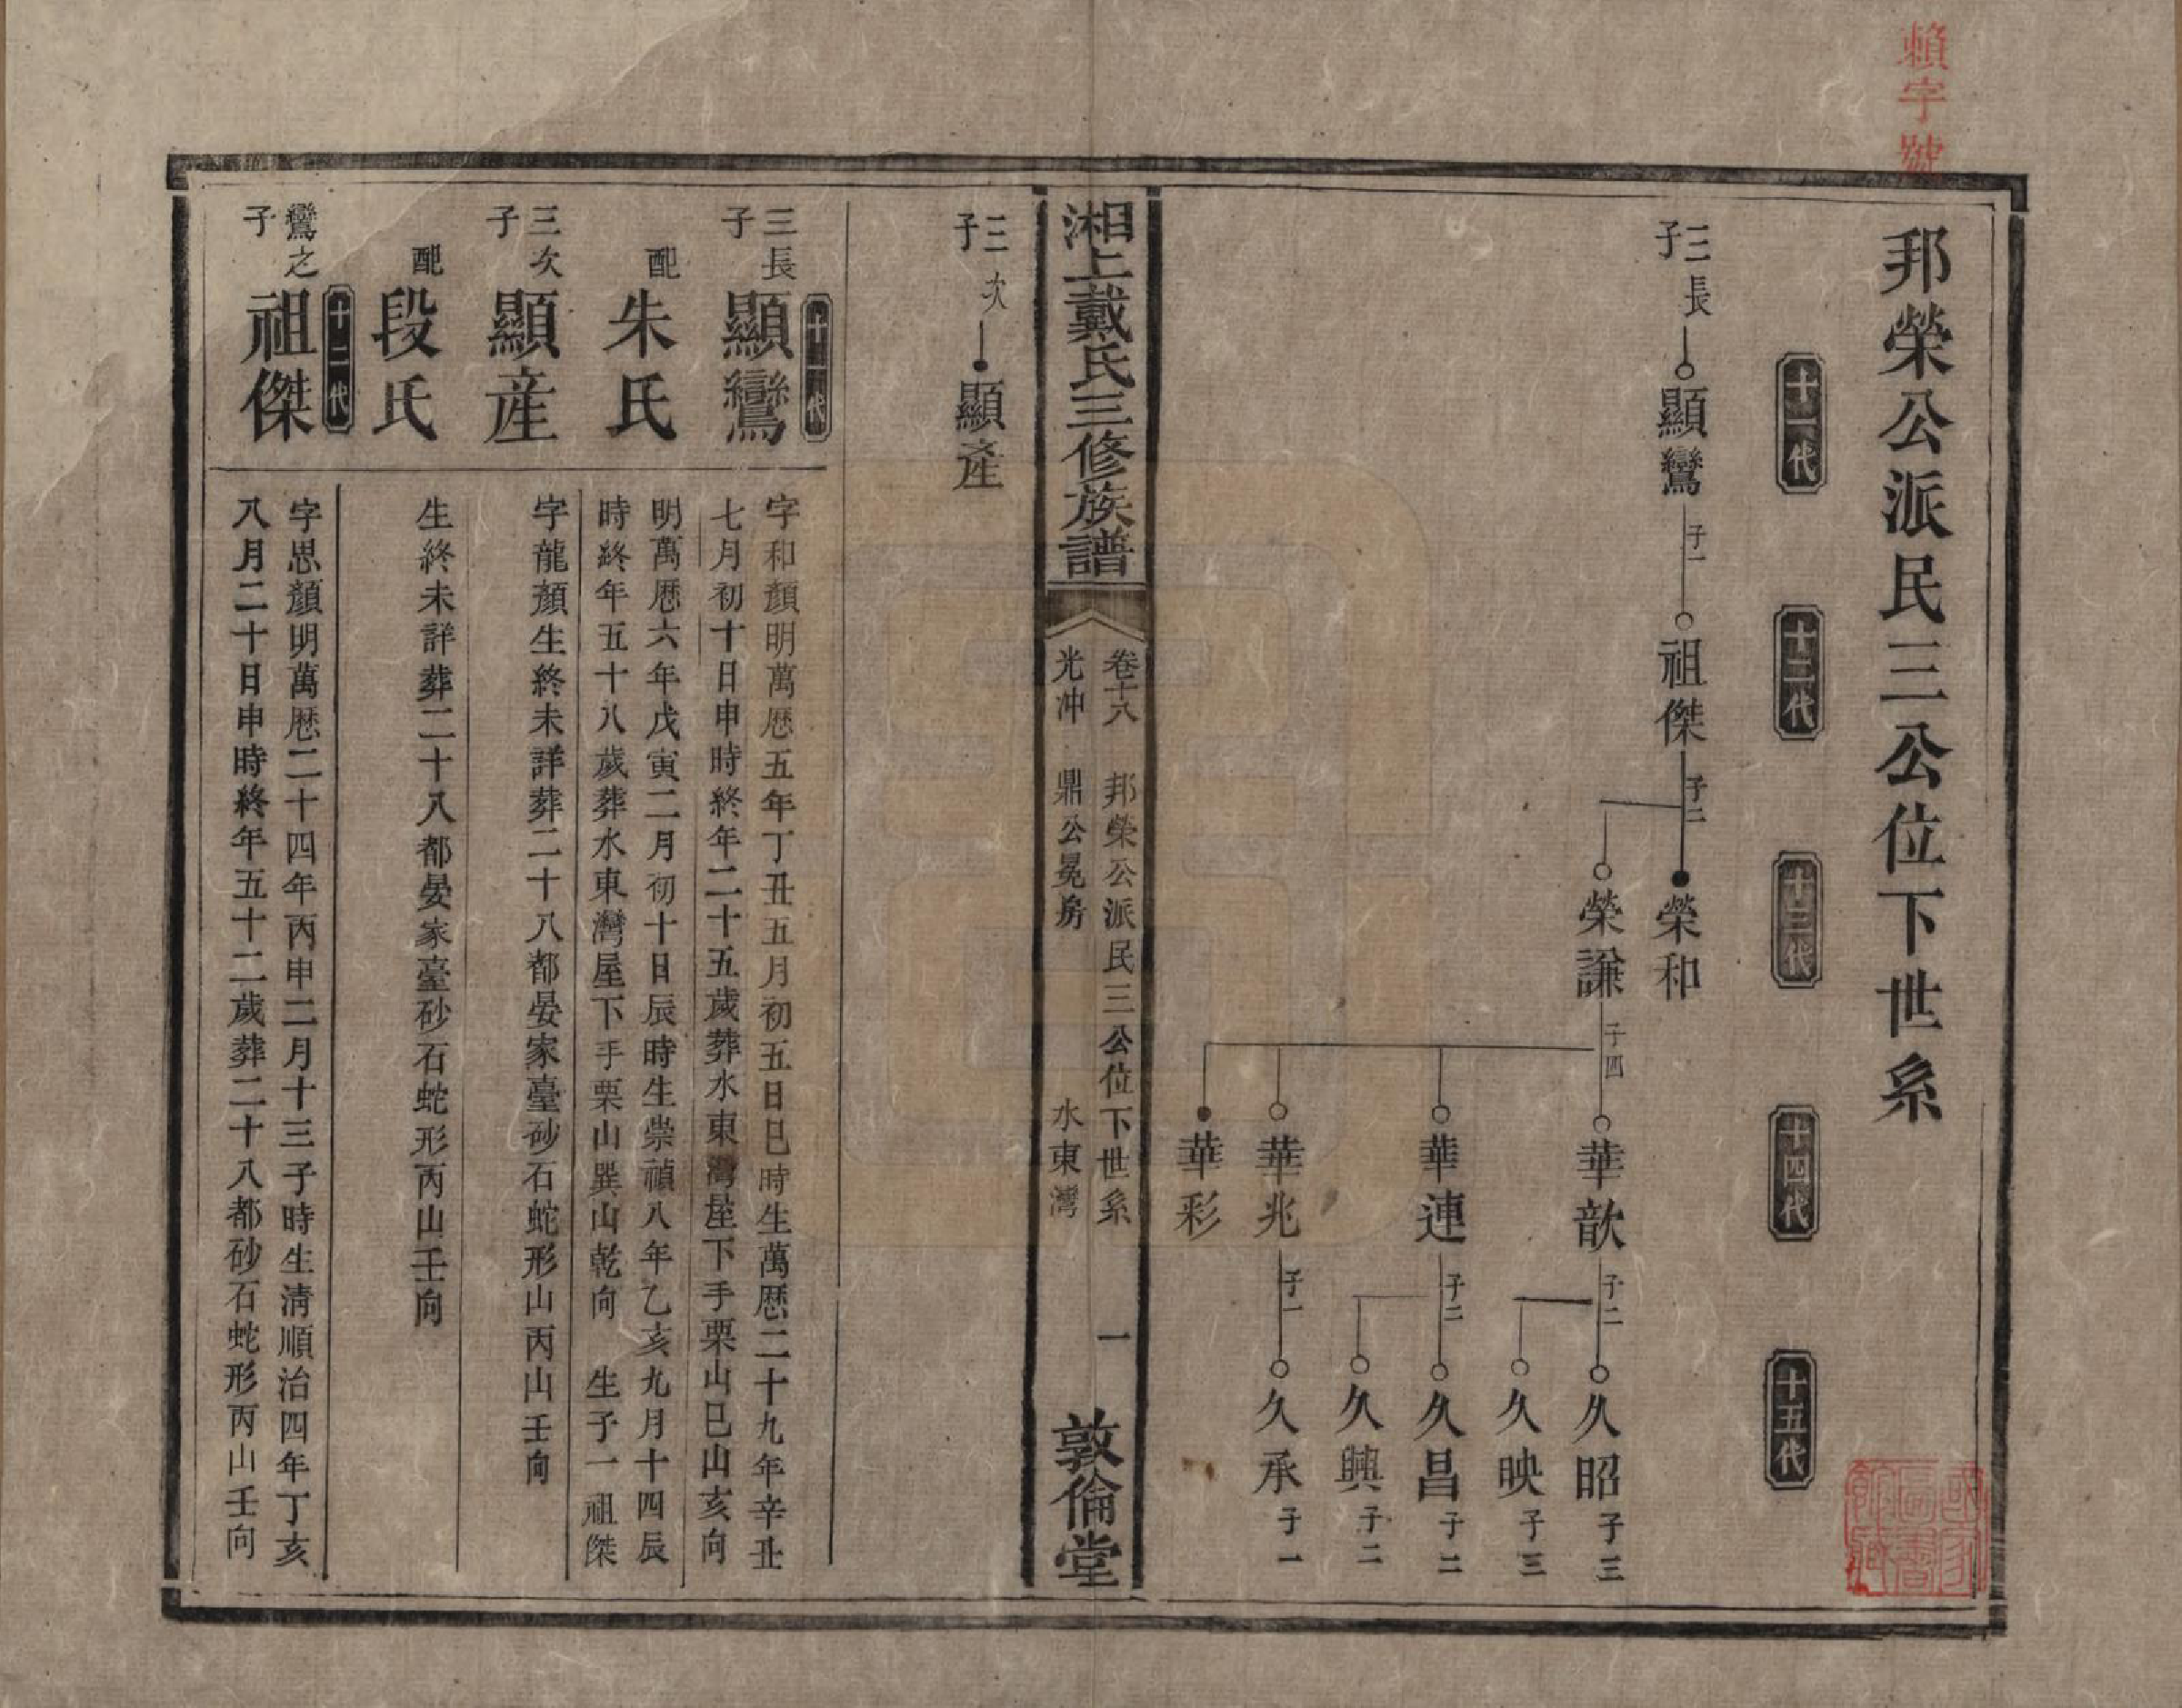 賴字號
邦榮公派民三公位下世系
十一代
十二代
十三代
十四代
十五代
三長子
顯鸞
子一
祖傑
子二
榮和
榮謙
子四
華歆
子二
久昭
子三
久映
子三
華連
子二
久昌
子二
久興
子二
華兆
子一
久承
子一
華彩
湘上戴氏三修族譜
卷十八
邦榮公派民三公位下世系
一
光冲
鼎公冕房
水東灣
敦倫堂
三次子
顯產
十一代
三長子
顯鸞
字和顏明萬歷五年丁丑五月初五日巳時生萬歷二十九年辛丑
七月初十日申時終年二十五歲葬水東灣屋下手栗山巳山亥向
配
朱氏
明萬歷六年戊寅二月初十日辰時生崇禎八年乙亥九月十四辰
時終年五十八歲葬水東灣屋下手栗山巽山乾向 生子一祖傑
三次子
顯産
字龍顏生終未詳葬二十八都晏家臺砂石蛇形山丙山壬向
配
段氏
生終未詳葬二十八都晏家臺砂石蛇形丙山壬向
十二代
鸞之子
祖傑
字思顏明萬歷二十四年丙申二月十三子時生清順治四年丁亥
八月二十日申時終年五十二歲葬二十八都砂石蛇形丙山壬向